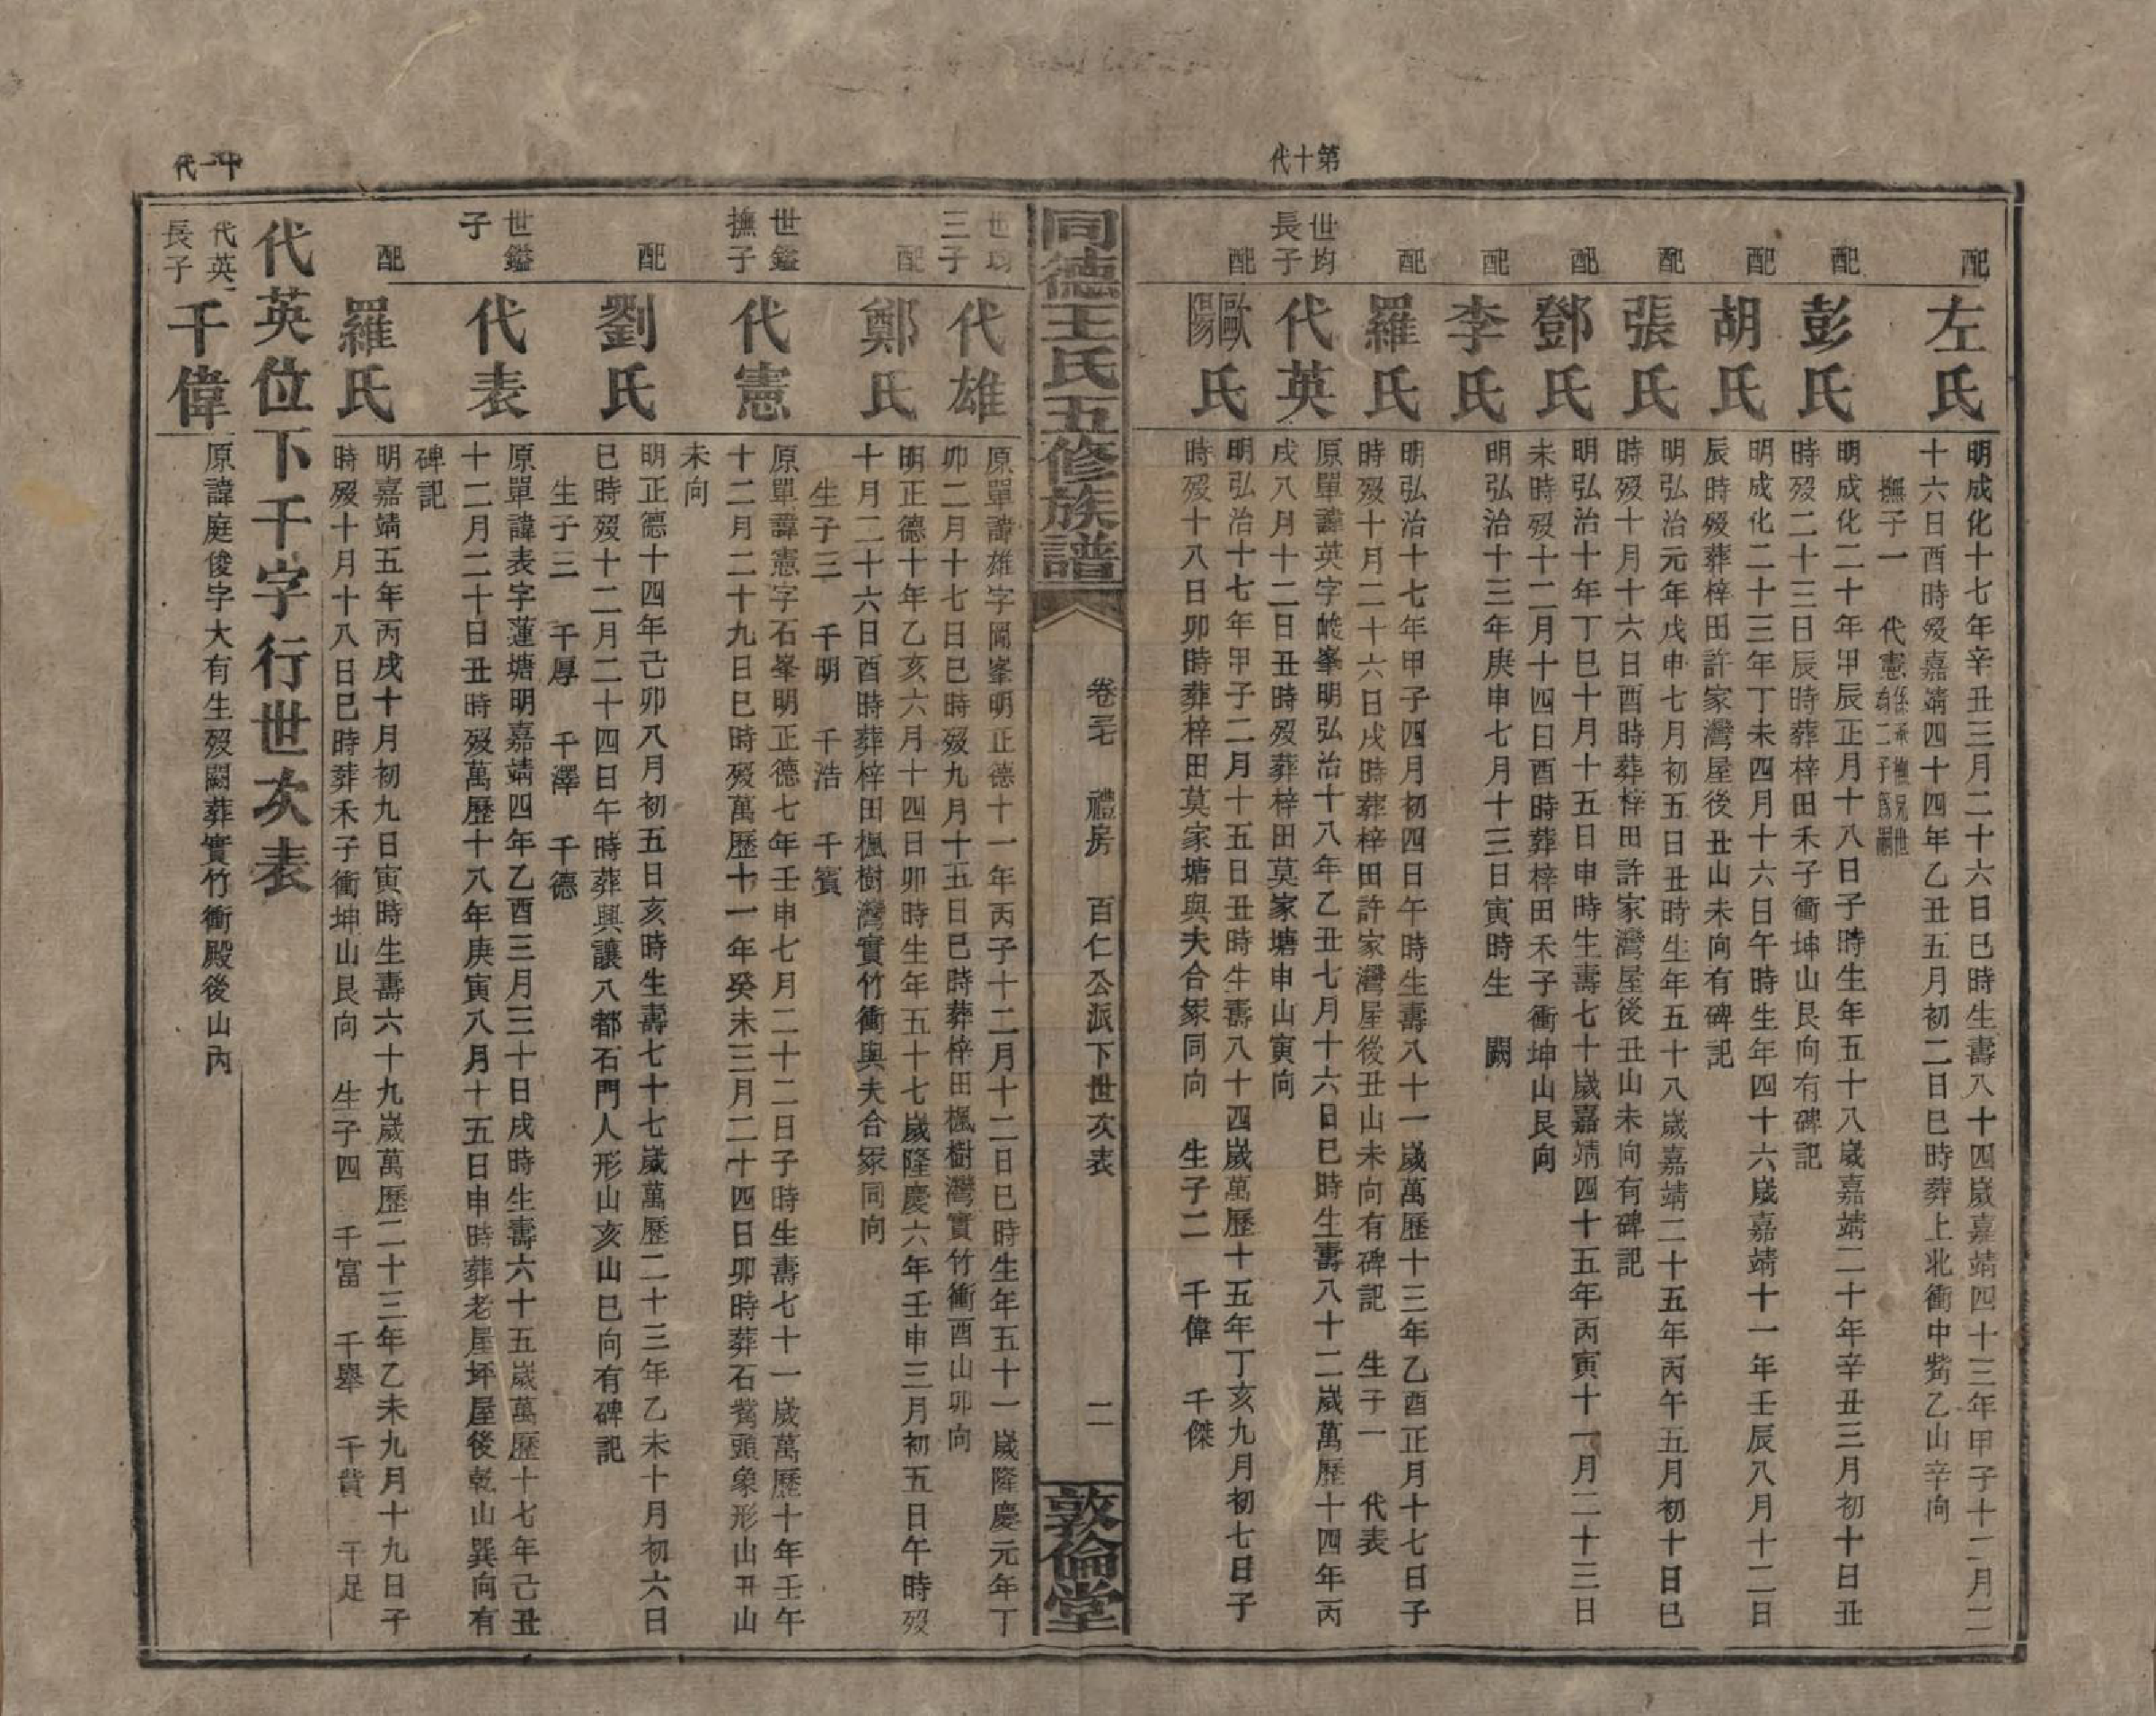 第十代
配
左氏
明成化十七年辛丑三月二十六日巳時生壽八十四歲嘉靖四十三年甲子十二月二
十六日酉時歿嘉靖四十四年乙丑五月初二日巳時葬上北衝中嘴乙山辛向
撫子一 代憲
配
彭氏
明成化二十年甲辰正月十八日子時生年五十八歲嘉靖二十年辛丑三月初十日丑
時歿二十三日辰時葬梓田禾子衝坤山艮向有碑記
配
胡氏
明成化二十三年丁未四月十六日午時生年四十六歲嘉靖十一年壬辰八月十二日
辰時歿葬梓田許家灣屋後丑山未向有碑記
配
張氏
明弘治元年戊申七月初五日丑時生年五十八歲嘉靖二十五年丙午五月初十日巳
時歿十月十六日酉時葬梓田許家灣屋後丑山未向有碑記
配
鄧氏
明弘治十年丁巳十月十五日申時生壽七十歲嘉靖四十五年丙寅十一月二十三日
未時歿十二月十四日酉時葬梓田禾子衝坤山艮向
配
李氏
明弘治十三年庚申七月十三日寅時生 闕
配
羅氏
明弘治十七年甲子四月初四日午時生壽八十一歲萬歷十三年乙酉正月十七日子
時歿十月二十六日戌時葬梓田許家灣屋後丑山未向有碑記 生子一 代表
世均
長子
代英
原單諱英字峻峯明弘治十八年乙丑七月十六日巳時生壽八十二歲萬歷十四年丙
戌八月十二日丑時歿葬梓田莫家塘申山寅向
配
歐陽氏
明弘治十七年甲子二月十五日丑時生壽八十四歲萬歷十五年丁亥九月初七日子
時歿十八日卯時葬梓田莫家塘與夫合冢同向 生子二 千偉 千傑
同德王氏五修族譜
卷三七 禮房 百仁公派下世次表
二
敦倫堂
世均
三子
代雄
原單諱雄字岡峯明正德十一年丙子十二月十二日巳時生年五十一歲隆慶元年丁
卯二月十七日巳時歿九月十五日巳時葬梓田楓樹灣實竹衝酉山卯向
配
鄭氏
明正德十年乙亥六月十四日卯時生年五十七歲隆慶六年壬申三月初五日午時歿
十月二十六日酉時葬梓田楓樹灣實竹衝與夫合冢同向
生子三 千明 千浩 千賓
世鎰
撫子
代憲
原單諱憲字石峯明正德七年壬申七月二十二日子時生壽七十一歲萬歷十年壬午
十二月二十九日巳時歿萬歷十一年癸未三月二十四日卯時葬石嘴頭象形山丑山
未向
配
劉氏
明正德十四年己卯八月初五日亥時生壽七十七歲萬歷二十三年乙未十月初六日
巳時歿十二月二十四日午時葬興讓八都石門人形山亥山巳向有碑記
生子三 千厚 千澤 千德
世鎰
子
代表
原單諱表字蓮塘明嘉靖四年乙酉三月三十日戌時生壽六十五歲萬歷十七年己丑
十二月二十日丑時歿萬歷十八年庚寅八月十五日申時葬老屋坪屋後乾山巽向有
碑記
配
羅氏
明嘉靖五年丙戌十月初九日寅時生壽六十九歲萬歷二十三年乙未九月十九日子
時歿十月十八日巳時葬禾子衝坤山艮向 生子四 千富 千舉 千貴 千足
代英位下千字行世次表
十一代
代英
長子
千偉
原諱庭俊字大有生歿闕葬實竹衝殿後山內